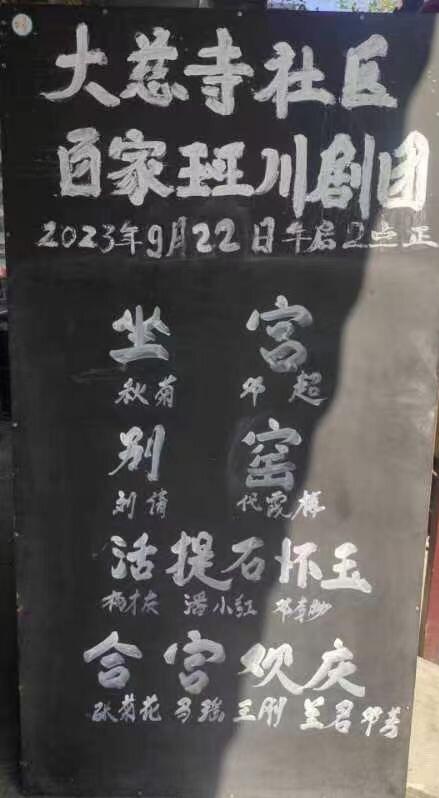 大慈寺社区
百家班川剧团
2023年9月22日午后2点正
坐 宫
秋菊 邓超
别 窑
刘倩 代霞
活捉石怀玉
杨才庆 潘小红 邓李
合宫欢庆
张菊花 马瑶 王刚 兰君 邓芳